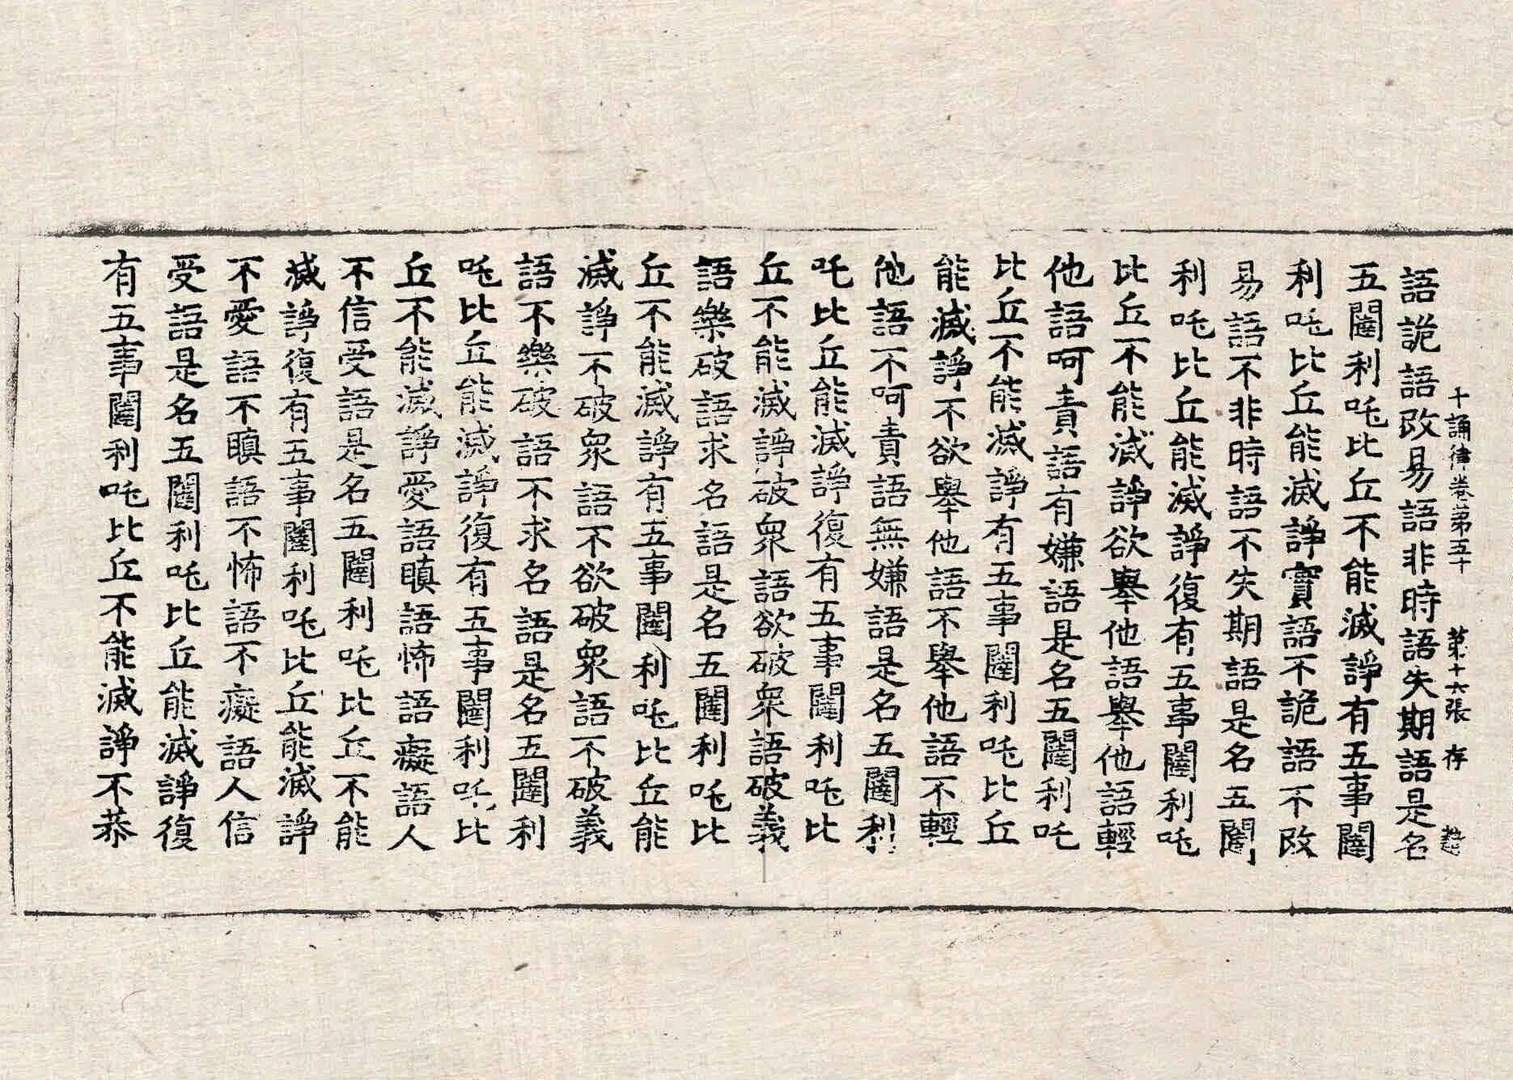 十誦律卷第五十 第十六張 存
語詭語改易語非時語失期語是名
五闥利吒比丘不能滅諍有五事闥
利吒比丘能滅諍實語不詭語不改
易語不非時語不失期語是名五闥
利吒比丘能滅諍復有五事闥利吒
比丘不能滅諍欲舉他語舉他語輕
他語呵責語有嫌語是名五闥利吒
比丘不能滅諍有五事闥利吒比丘
能滅諍不欲舉他語不舉他語不輕
他語不呵責語無嫌語是名五闥利
吒比丘能滅諍復有五事闥利吒比
丘不能滅諍破衆語欲破衆語破義
語樂破語求名語是名五闥利吒比
丘不能滅諍有五事闥利吒比丘能
滅諍不破衆語不欲破衆語不破義
語不樂破語不求名語是名五闥利
吒比丘能滅諍復有五事闥利吒比
丘不能滅諍愛語瞋語怖語癡語人
不信受語是名五闥利吒比丘不能
滅諍復有五事闥利吒比丘能滅諍
不愛語不瞋語不怖語不癡語人信
受語是名五闥利吒比丘能滅諍復
有五事闥利吒比丘不能滅諍不恭